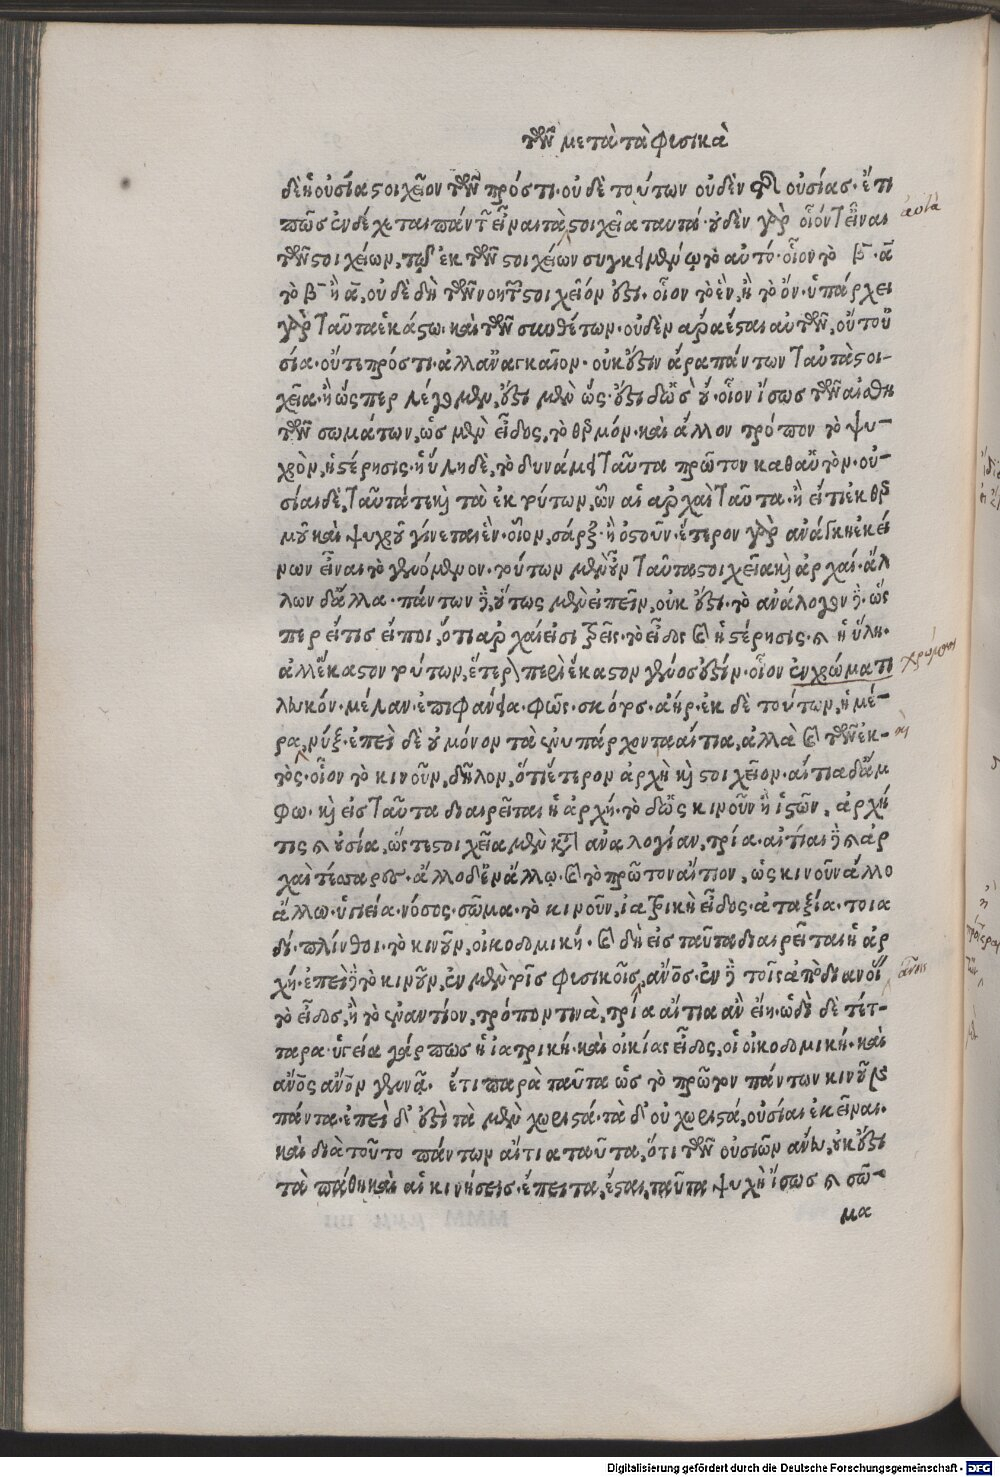 τῶν μετὰ τὰ φυσικὰ
δὲ ἡ οὐσία στοιχεῖον τῶν πρός τι· οὐδὲ τούτων οὐδὲν τῆς οὐσίας· ἔτι
πῶς ἐνδέχεται πάντων εἶναι τὰ στοιχεῖα ταυτά· οὐδὲν γὰρ οἷόν τ' εἶναι
τῶν στοιχείων, τῷ ἐκ τῶν στοιχείων συγκειμένῳ τὸ αὐτό· οἷον τὸ β̄· ᾱ
τὸ β̄ ἢ ᾱ, οὐδὲ δὴ τῶν νοητῶν στοιχεῖόν ἐστι· οἷον τὸ ἓν, ἢ τὸ ὄν· ὑπάρχει
γὰρ ταῦτα ἑκάστῳ· καὶ τῶν συνθέτων· οὐδὲν ἄρα ἔσται αὐτῶν, οὔτ' οὐ
σία· οὔτε πρός τι· ἀλλ' ἀναγκαῖον· οὐκ ἔστιν ἄρα πάντων ταὐτὰ στοι-
χεῖα· ἢ ὥσπερ λέγομεν, ἔστι μὲν ὥς· ἔστι δ' ὣς οὔ· οἷον ἴσως τῶν αἰσθη
τῶν σωμάτων, ὡς μὲν εἶδος, τὸ θερμόν· καὶ ἄλλον τρόπον τὸ ψυ-
χρὸν, ἡ στέρησις· ἡ ὕλη δὲ, τὸ δυνάμει ταῦτα πρῶτον καθ' αὑτόν· οὐ-
σίαι δὲ, ταῦτά τε καὶ τὰ ἐκ τούτων, ὧν αἱ ἀρχαὶ ταῦτα· ἢ εἴ τι ἐκ θερ
μοῦ καὶ ψυχροῦ γίνεται ἓν· οἷον, σάρξ· ἢ ὀστοῦν· ἕτερον γὰρ ἀνάγκη ἐκεί
νων εἶναι τὸ γενόμενον· τούτων μὲν οὖν ταῦτα στοιχεῖα καὶ ἀρχαί· ἄλ
λων δ' ἄλλα· πάντων δὲ, οὕτως μὲν εἰπεῖν, οὐκ ἔστι· τὸ ἀνάλογον δὲ· ὥς
περ εἴ τις εἴποι, ὅτι ἀρχαί εἰσι τρεῖς· τὸ εἶδος καὶ ἡ στέρησις· καὶ ἡ ὕλη·
ἀλλ' ἕκαστον τούτων, ἕτερον περὶ ἕκαστον γένος ἐστίν· οἷον ἐν χρώματι
λευκόν· μέλαν· ἐπιφάνεια· φῶς· σκότος· ἀήρ· ἐκ δὲ τούτων, ἡμέ-
ρα, νύξ· ἐπεὶ δὲ οὐ μόνον τὰ ἐνυπάρχοντα αἴτια, ἀλλὰ καὶ τῶν ἐκ-
τὸς· οἷον τὸ κινοῦν, δῆλον, ὅτι ἕτερον ἀρχὴ καὶ στοιχεῖον· αἴτια δ' ἄμ
φω· καὶ εἰς ταῦτα διαιρεῖται ἡ ἀρχή· τὸ δ' ὡς κινοῦν ἢ ἱστῶν, ἀρχή
τις καὶ οὐσία, ὥστε στοιχεῖα μὲν κατ' ἀναλογίαν, τρία· αἰτίαι δὲ καὶ ἀρ
χαὶ τέτταρες· ἄλλο δ' ἐν ἄλλῳ· καὶ τὸ πρῶτον αἴτιον, ὡς κινοῦν ἄλλο
ἄλλῳ· ὑγιεία· νόσος· σῶμα· τὸ κινοῦν, ἰατρικὴ εἶδος· ἀταξία· τοια
δί· πλίνθοι· τὸ κινοῦν, οἰκοδομική· καὶ δὴ εἰς ταῦτα διαιρεῖται ἡ ἀρ
χή· ἐπεὶ δὲ τὸ κινοῦν, ἐν μὲν τοῖς φυσικοῖς, ἄνος· ἐν δὲ τοῖς ἀπὸ διανοί
τὸ εἶδος, ἢ τὸ ἐναντίον, τρόπον τινὰ, τρία αἴτια ἂν εἴη· ὡδὶ δὲ τέτ-
ταρα· ὑγιεία γάρ πως ἡ ἰατρική· καὶ οἰκίας εἶδος, οἱ οἰκοδομική· καὶ
ἄνος ἄνον γεννᾷ· ἔτι παρὰ ταῦτα ὡς τὸ πρῶτον πάντων κινοῦν
πάντα· ἐπεὶ δ' ἐστὶ τὰ μὲν χωριστά· τὰ δ' οὐ χωριστά, οὐσίαι ἐκεῖναι·
καὶ διὰ τοῦτο πάντων αἴτια ταῦτα, ὅτι τῶν οὐσιῶν ἄνευ, οὐκ ἔστι
τὰ πάθη καὶ αἱ κινήσεις· ἔπειτα, ἔσται, ταῦτα ψυχὴ ἴσως καὶ σῶ-
μα
αὐτὰ
χρώματι
καὶ